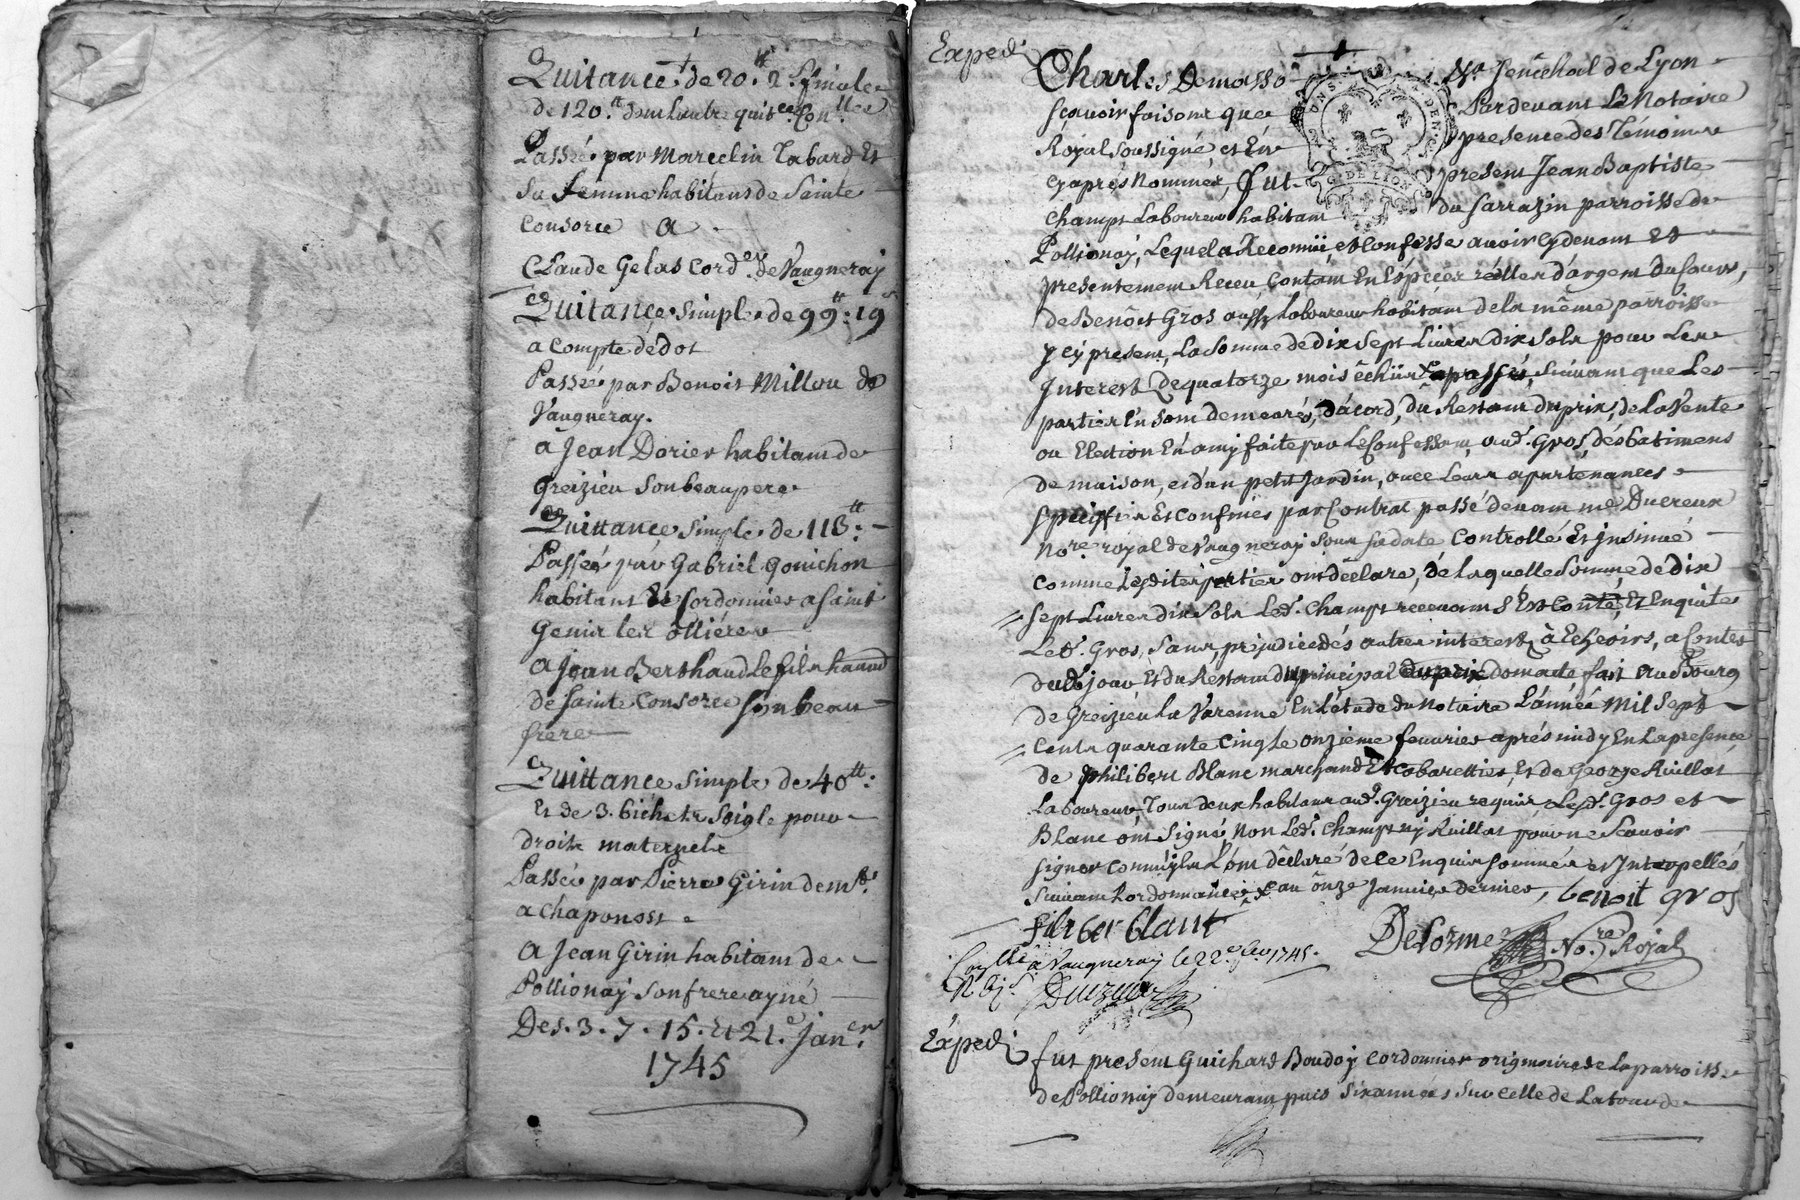 Quitance de 20.tt 2.s finale
de 120.tt dem lautre quitce. Con.lles
Passée par Marcelin Tabard Et
Sa femme habitans de Sainte
Consorce a
Claude Gelas Cord.er de Vaugneray
Quitance Simple de 99.tt 19
a Compte de dot
Passée par Benoit Millou de
Vaugneray.
a Jean Dorier habitant de
Greizieu Son beaupere
Quittance Simple de 118.tt
Passée par Gabriel Gouichon
habitant Et Cordonnier a Saint
Genis les ollieres
a Jean Berthaud Le fils
de Sainte Consorce Son beau
frere
Quittance Simple de 40.tt
Et de 3. bichets Seigle pour
droits maternels
Passée par Pierre Girin dem.t
a Chaponost
a Jean Girin habitant de
Pollionay Son frere ayné
Des. 3. 7. 15. Et 21.e Jan.er
1745
Exped.
Charles Demasso Senéchal de Lyon
Scavoir faisons que Pardevant Le Notaire
Royal Soussigné, et En presence des Témoins
Cy aprés Nommés, fut present Jean Baptiste
Champt Laboureur habitant du Sarrazin parroisse de
Pollionay, Lequel a Reconnü, et Confesse avoir Cy devant Et
presentement Receu Contant En Espèces réélles d'argent du Cours,
de Benôit Gros aussy Laboureur habitant de la même parroisse
y cy present, La Somme de dix Sept Livres dix Sols pour Les
Interest De quatorze mois échüs Suivant que Les
parties En Sont demeurés, d'acord, du Restant du prix, de La Vente
ou Election En amy faite par Le Confessant, aud. Gros dés batimens
de maison, et d'un petit Jardin, avec Leurs aparténances
Speciffiés Et Confinés par Contrat passé devant me Ducreux
No.re royal de Vaugneray Sous Sa date Controllé Et Insinué
Comme Lesdites parties ont déclaré, de Laquelle Somme de dix
Sept Livres dix Sols Led. Champt recevant S'Est Conté, Et En quitte
Led. Gros, Sans, préjudice dés autres interest à Echeoirs, a Conter
dud. jour Et du Restant du principal dont acte fait Aud. Bourg
de Greizieu La Varenne En L'étude du Notaire L'année Mil Sept
Cents quarante Cinq Le onzieme feuvrier aprés midy En La presence
de philibert Blanc marchand Et Cabarettier, Et de George Ruillat
Laboureur, Tous deux habitans aud. Greizieu requis Lesd. Gros et
Blanc ont Signé Non Led. Champt ny Ruillat pour ne Scavoir
Signer Comm'ils L'ont déclaré de Ce Enquis Sommés et Interpellés
Suivant L'ordonnance, x au ônze Janvier dernier, benoit gros
filiber blanc
Delorme No.re Royal
Con.llé a Vaugneray le 22.e 1745.
Exped.
fut present Guichard Boudoy Cordonnier originaire de La parroisse
de Pollionay demeurant puis Six années Sur Celle de La tour de